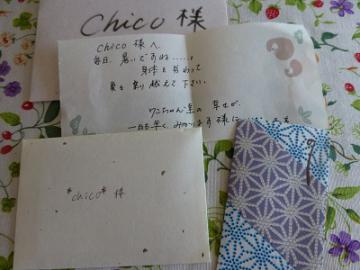 Chico 様
Chico 様へ
毎日、暑いですね……。
身体を労わって
夏を乗り越えて下さい。
ワンちゃん達の幸せが
一日も早く、みつかります様に
*chico* 様